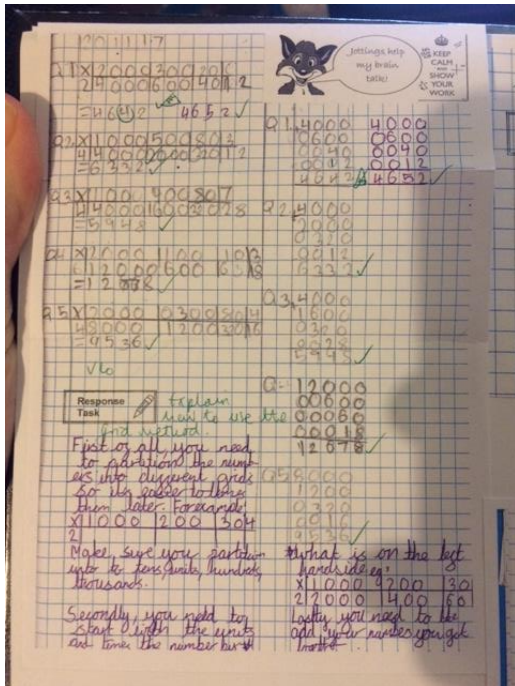 Jottings help
my brain
talk!
KEEP
CALM
AND
SHOW
YOUR
WORK
Q1 X 2000 300 20 6
2 4000 600 40 12
=4642 4652
Q2 X 1000 500 80 3
4 4000 2000 320 12
=6332
Q3 X 1000 400 80 7
4 4000 1600 320 28
=5948
Q4 X 2000 100 10 3
6 12000 600 60 18
=12678
Q5 X 2000 0300 80 4
4 8000 1200 320 16
=9536
Q1 4000 4000
0600 0600
0040 0040
0012 0012
4642 4652
Q2 4000
2000
0320
0012
6332
Q3 4000
1600
0320
0028
5948
12000
00600
00060
00018
12678
Q5 8000
1200
0320
0016
9536
Response
Task
Explain
how to use the
grid method.
First of all, you need
to partition the numb-
ers into different grids
so its easier to
them later. For example
X 1000 200 30 4
2
Make sure you partition
into to tens, units, hundreds,
thousands.
Secondly, you need to
start with the units
and times the number
what is on the left
handside eg:
X 1000 200 30
2 2000 400 60
Lastly you need to
add your you got